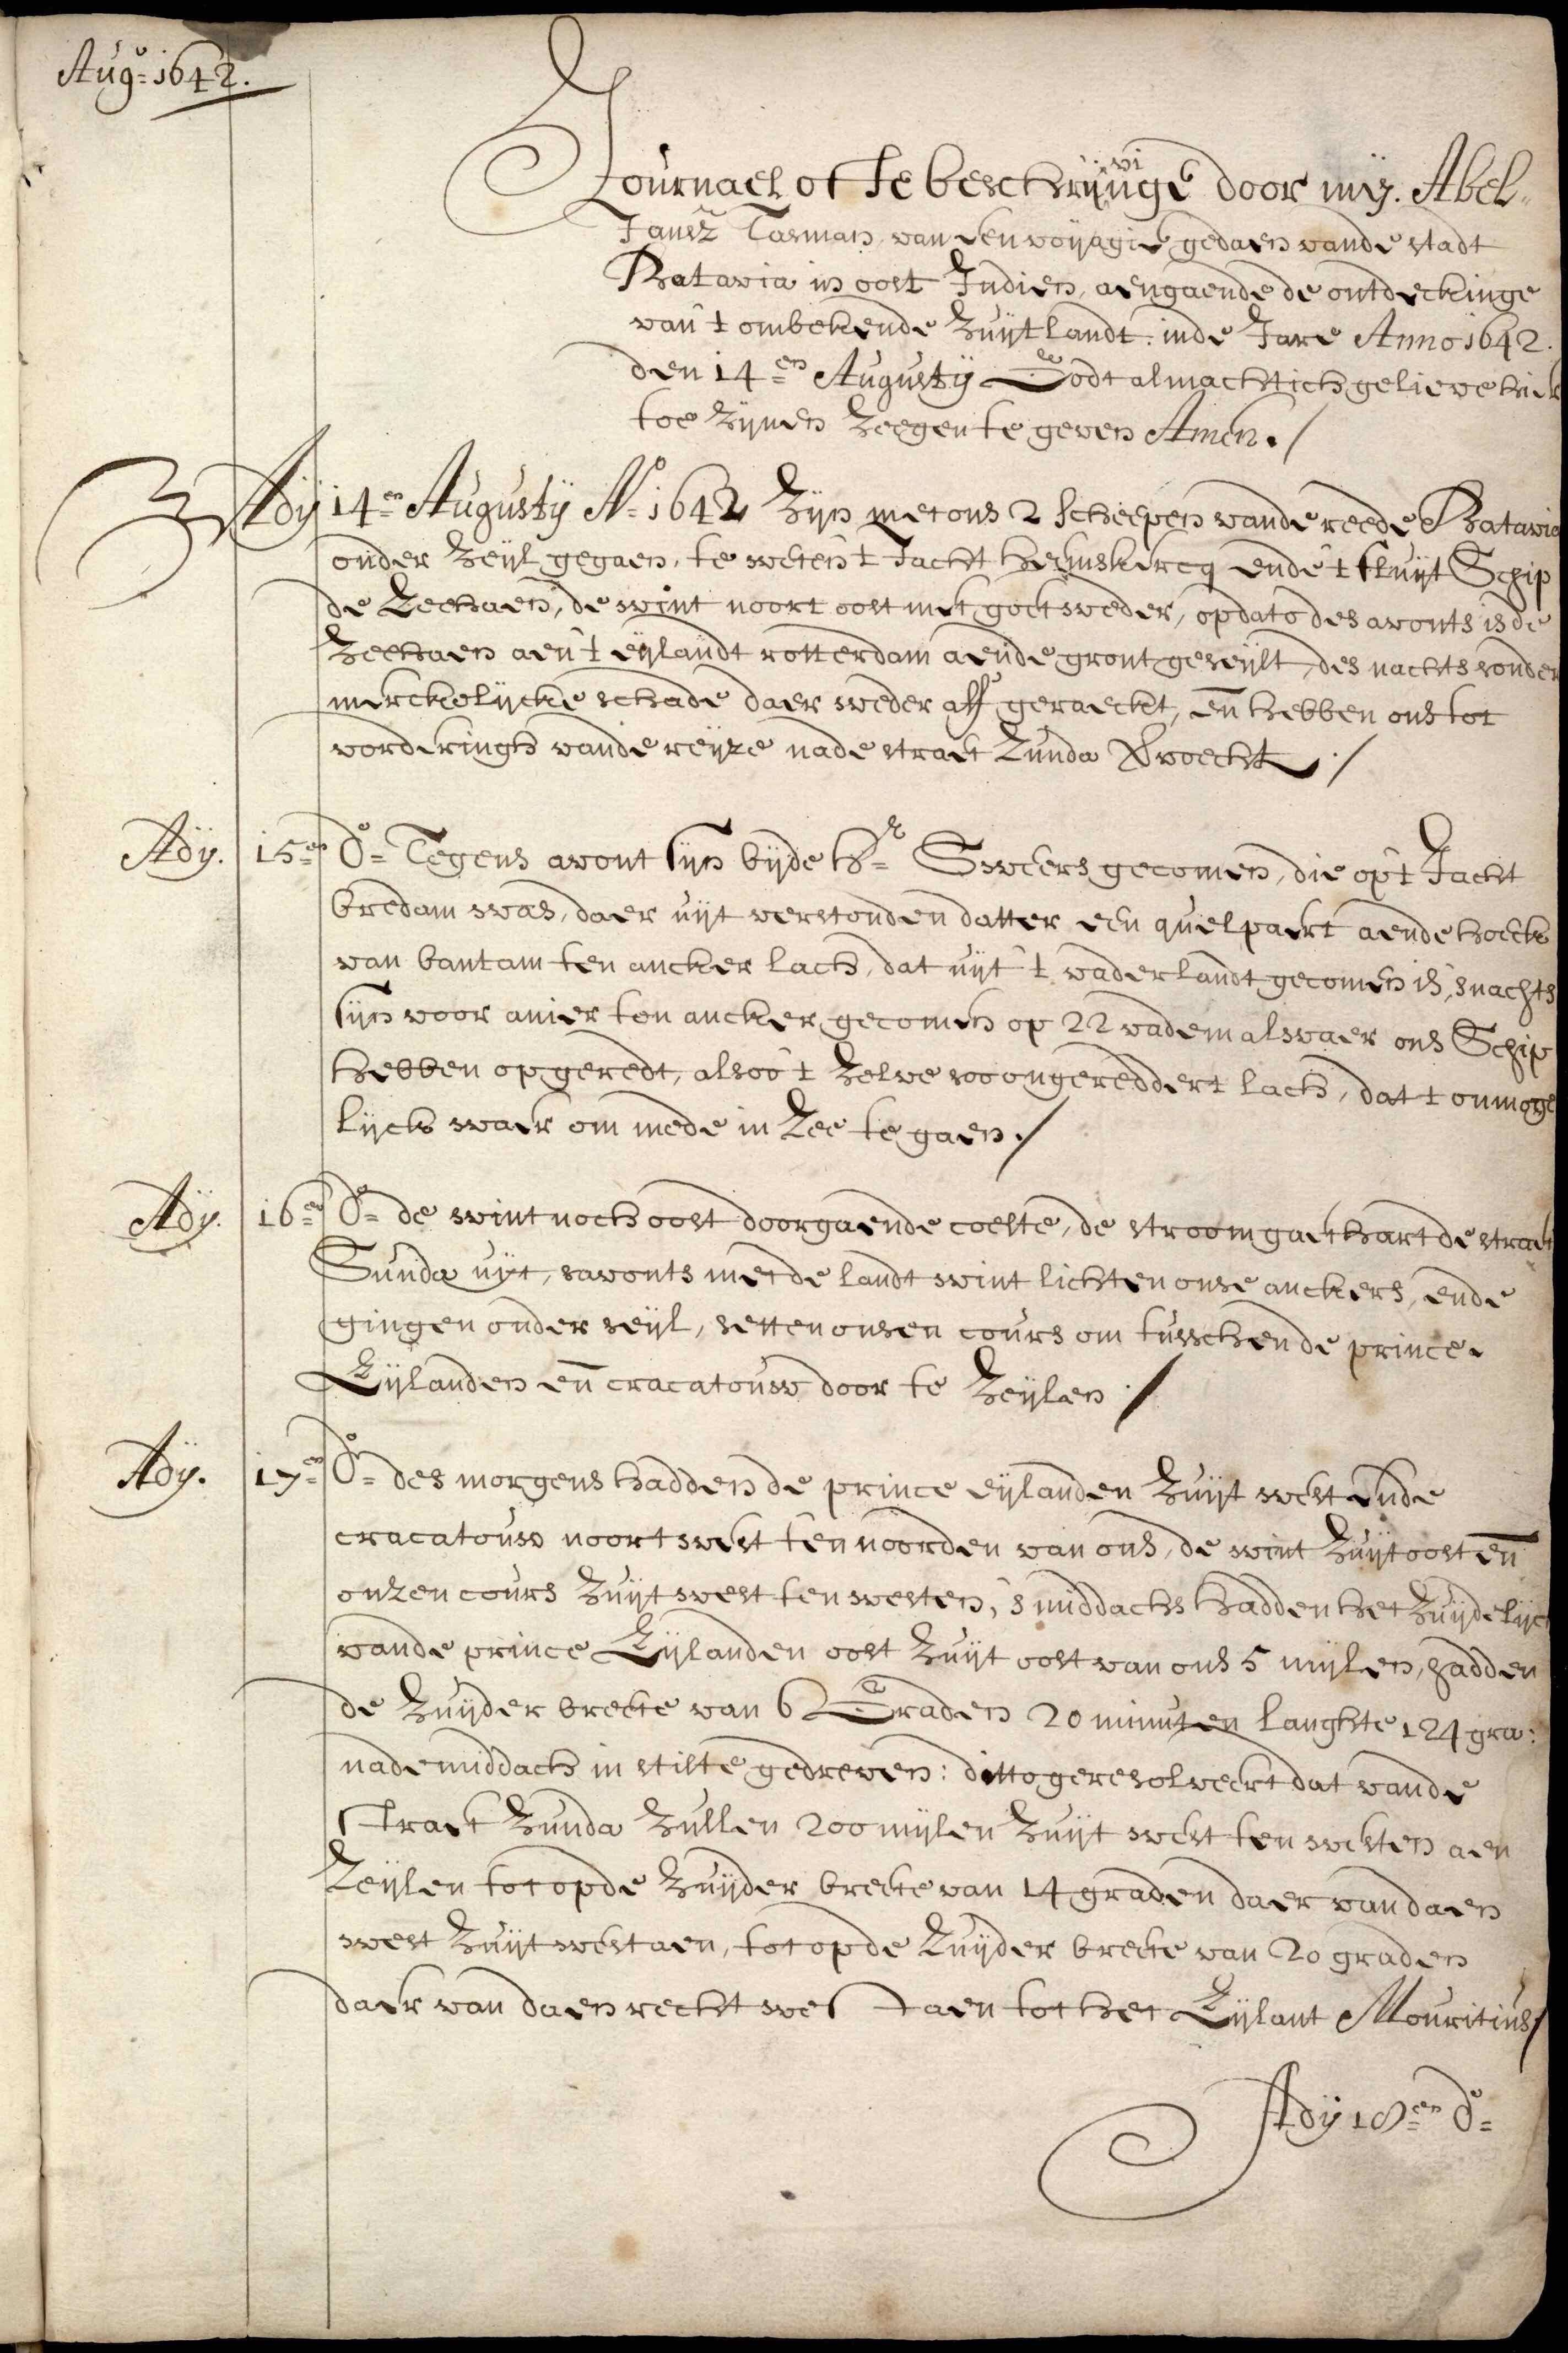 Augo: 1642.
Journael ofte beschrijvinge door mij. Abel
Jansz Tasman, van een voijagie gedaen vande stadt
Batavia in oost Indien, aengaende de ontdeckinge
van 't ombekende Zuijtlandt. inde Jare Anno 1642.
den 14en Augustij Godt almachtich gelieve hier
toe Zijnen Zeegen te geven Amen. /
Adij 14en Augustij Ao 1642 Zijn met ons 2 scheepen vande reede Batavia
onder Zeijl gegaen, te weten 't Jacht heemskercq ende 't fluijt Schip
de Zeehaen, de wint noort oost met goet weder, op dato des avonts is de
Zeehaen aen 't eijlandt rotterdam aende gront geseijlt, des nachts sonder
merckelijcke schade daer weder aff geraeckt, en hebben ons tot
vorderingh vande reijze nade straet Zunda Vervoecht ./
Adij. 15en do Tegens avont sijn bijde hr Sweers gecomen, die op 't Jacht
bredam was, daer uijt verstonden datter een quelpaert aende hoeck
van bantam ten ancker lach, dat uijt 't vaderlandt gecomen is, snachts
sijn voor anier ten ancker gecomen op 22 vadem alwaer ons Schip
hebben opgeredt, alsoo 't Zelve soo ongereddert lach, dat 't onmoge
lijck waer om mede in Zee te gaen ./
Adij. 16en do de wint noch oost doorgaende coelte, de stroom gaet hart de straet
Sunda uijt, savonts met de landt wint lichten onse anckers, ende
gingen onder seijl, setten onsen cours om tusschen de prince
Eijlanden en cracatouw door te Zeijlen ./
Adij. 17en do des morgens hadden de prince eijlanden Zuijt west ende
cracatouw noort west ten noorden van ons, de wint Zuijtoost en
onzen cours Zuijtwest ten westen, smiddachs hadden het Zuijdelijcx
vande prince Eijlanden oost Zuijt oost van ons 5 mijlen, hadden
de Zuijder breete van 6 Graden 20 minuten langhte 124 gra:
nademiddach in stilte gedreven: ditto geresolveert dat vande
straet Zunda Zullen 200 mijlen Zuijt west ten westen aen
Zeijlen tot opde Zuijder breete van 14 graden daer van daen
west Zuijt west aen, tot opde Zuijder breete van 20 graden
daer van daen recht west aen tot het Eijlant Mouritius /
Adij 18en do